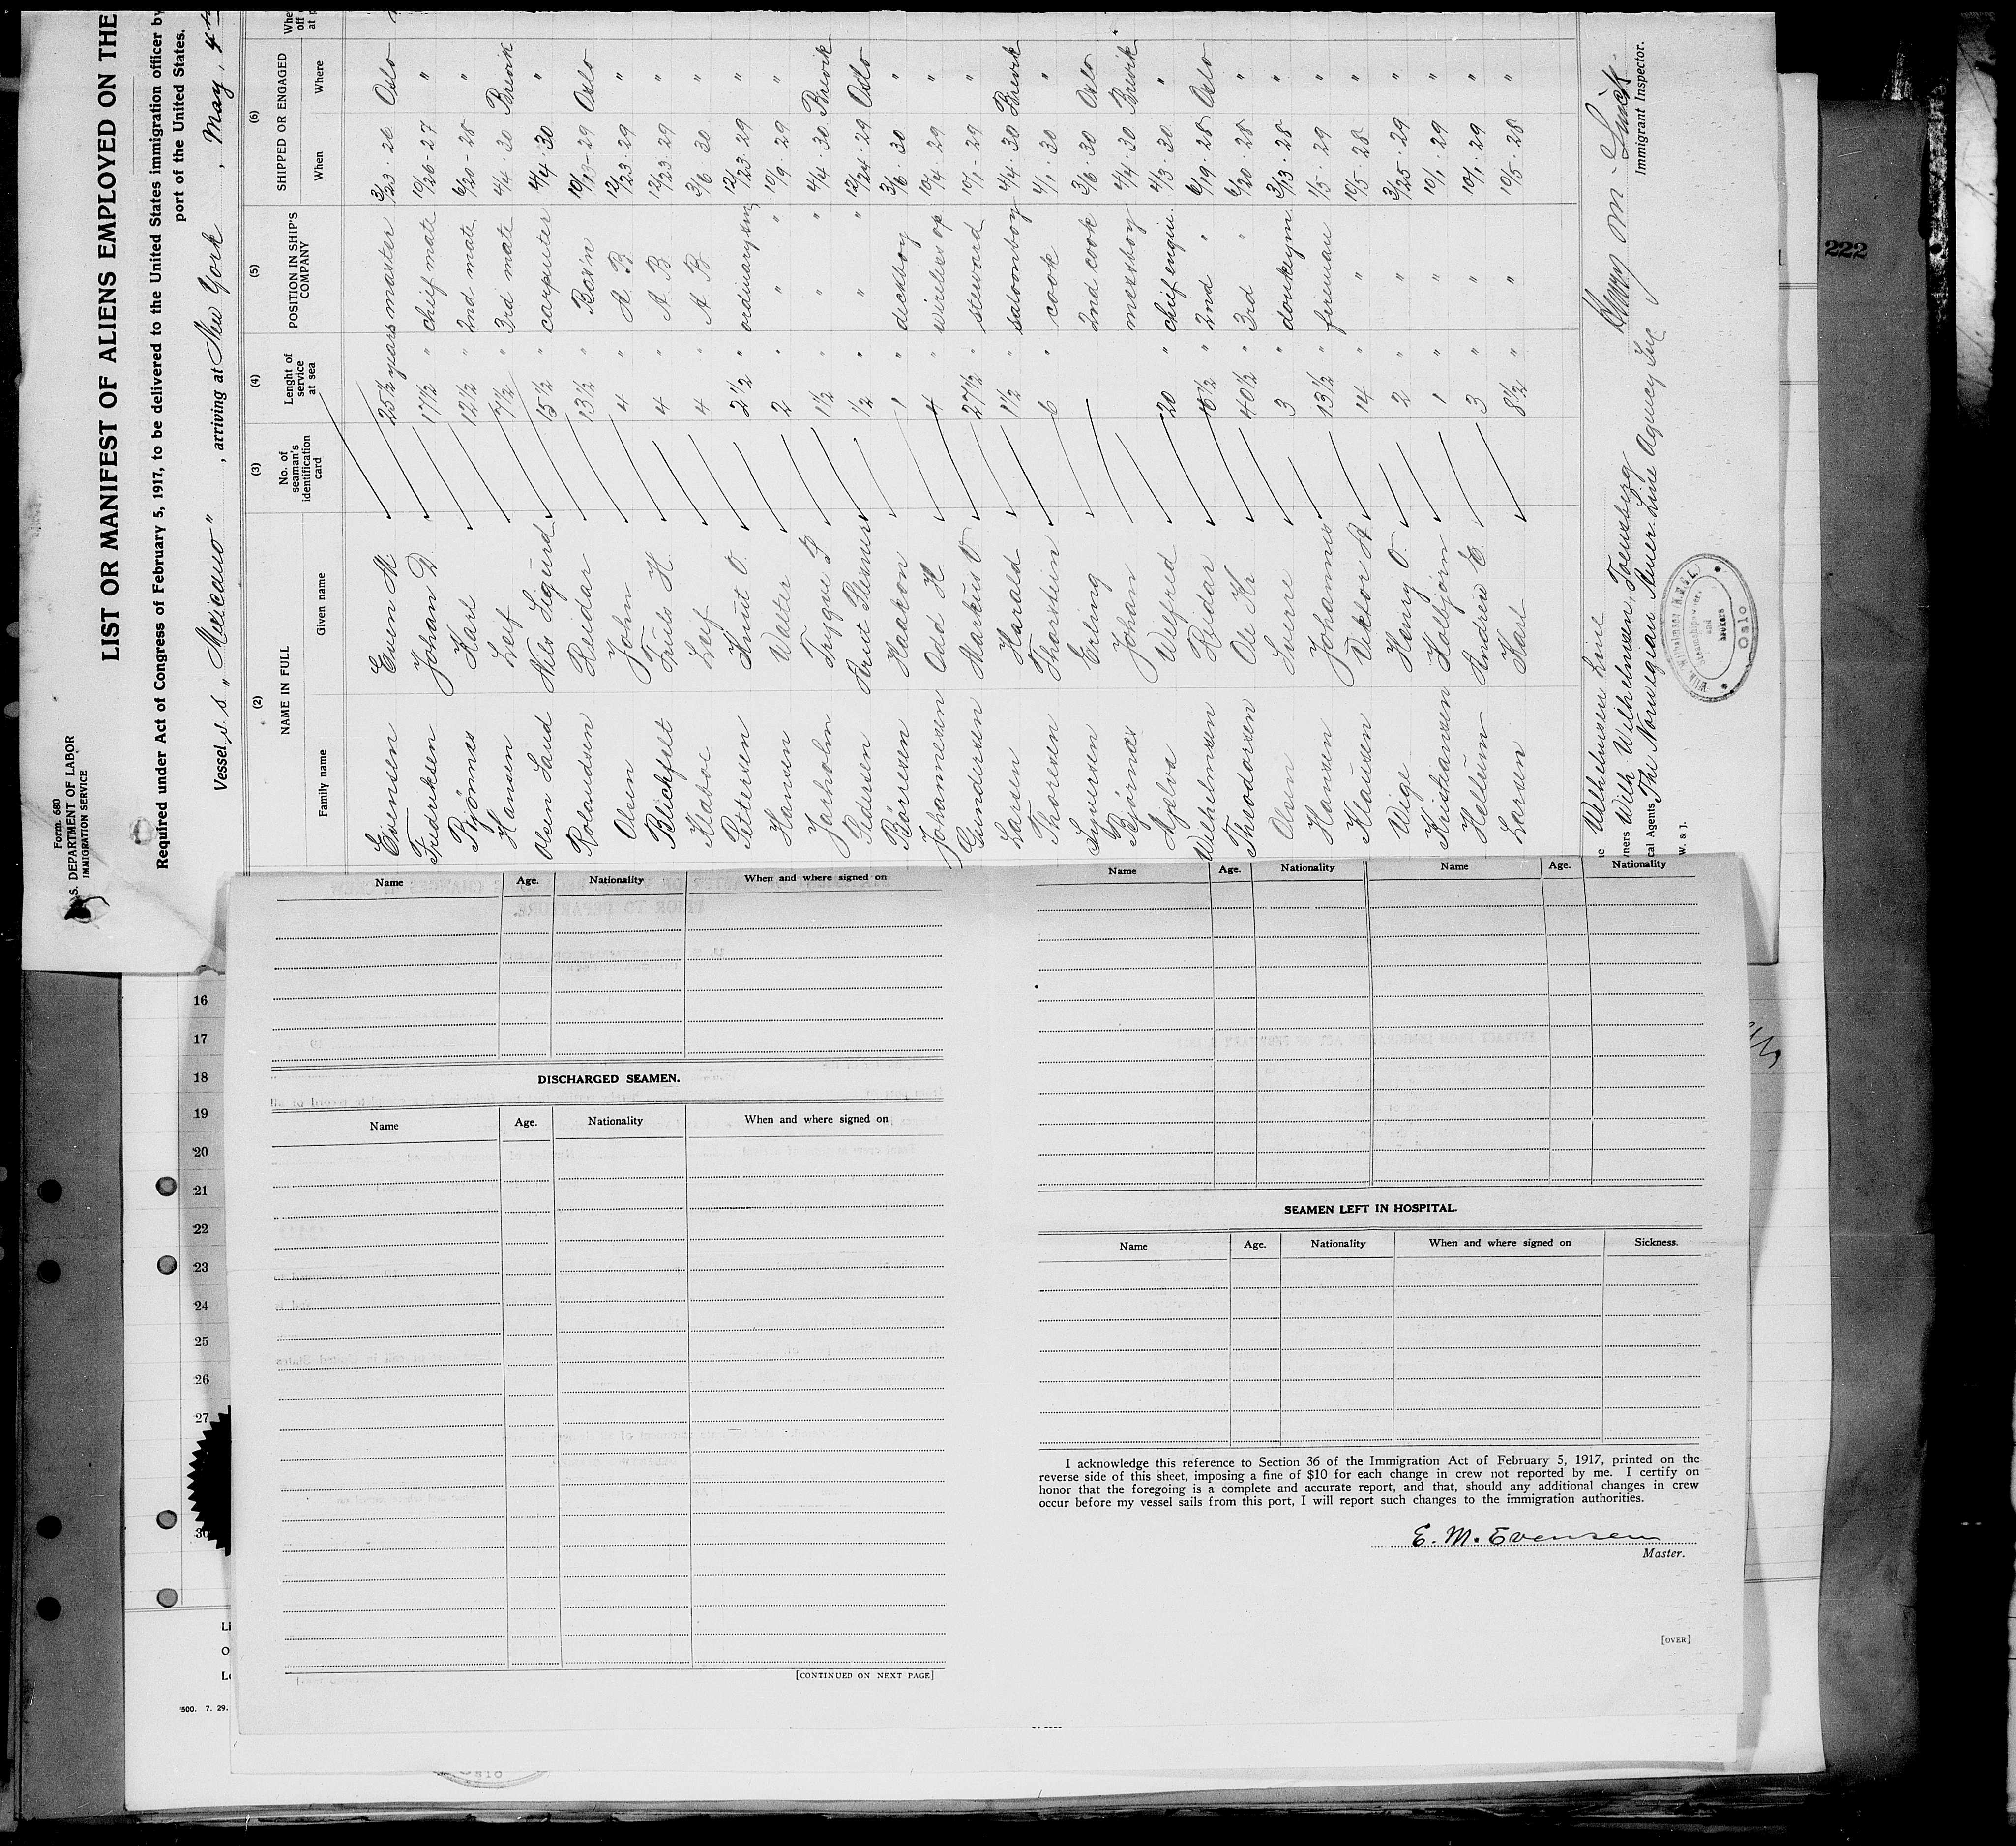 Form 680
S. DEPARTMENT OF LABOR
IMMIGRATION SERVICE
LIST OR MANIFEST OF ALIENS EMPLOYED ON THE
Required under Act of Congress of February 5, 1917, to be delivered to the United States immigration officer by
port of the United States.
Vessel S. S. "Mexicano", arriving at New York, May, 4th
(2) (3) (4) (5) (6)
NAME IN FULL No. of seaman's identification card Lenght of service at sea POSITION IN SHIP'S COMPANY SHIPPED OR ENGAGED
Family name Given name When Where
Evensen Even M. 25½ years master 3/23 · 26 Oslo
Fredriksen Johan D. 17½ " chief mate 10/26 - 27 "
Karl 12½ " 2nd mate 6/20 - 28 "
Hansen Leif 7½ " 3rd mate 4/4 · 30 Brevik
Olsen Sand Nils Sigurd 15½ " carpenter 4/4 · 30 "
Rolandsen Reidar 13½ " Bos'n 10/15 - 29 Oslo
Olsen John 4 " A B 12/23 · 29 "
Blichfelt Truls H. 4 " A B 12/23 · 29 "
Klaboe Leif 4 " A B 3/6 · 30 "
Pettersen Knut O. 2½ " ordinary sm 12/23 · 29 "
Hansen Walter 2 " " 10/9 · 29 "
Jarholm Trygve B 1½ " " 4/4 · 30 Brevik
Pedersen Arent ½ " " 12/24 · 29 Oslo
Börresen Haakon 1 " decksboy 3/6 · 30 "
Johannesen Odd H. 4 " wireless op 10/4 · 29 "
Gundersen Markus O 27½ " steward 10/1 - 29 "
Larsen Harald 1½ " saloonboy 4/4 · 30 Brevik
Thoresen Thorstein 6 " cook 4/1 · 30 "
Syversen Erling 2nd cook 3/6 · 30 Oslo
Bjørnæs Johan messboy 4/4 · 30 Brevik
Mjelva Wilfred 20 " chief engin. 4/3 · 30 "
Wilhelmsen Reidar 10½ " 2nd " 6/19 · 28 Oslo
Theodorsen Ole Kr. 40½ " 3rd " 6/20 · 28 "
Olsen Sverre 3 " donkeym 3/13 · 28 "
Hansen Johannes 13½ " fireman 1/5 · 29 "
Klausen Viktor A 14 " " 10/5 - 28 "
Wige Henry O. 2 " " 3/25 · 29 "
Kristiansen Kolbjørn 1 " " 10/1 · 29 "
Hellum Andrew E. 3 " " 10/1 · 29 "
Larsen Karl 8½ " " 10/5 · 28 "
Wilhelmsen Line
ners Wilh Wilhelmsen, Toensberg
cal Agents The Norwegian Amer. Line Agency Inc
W. & J.
Immigrant Inspector.
Oslo
222
Name Age. Nationality When and where signed on
DISCHARGED SEAMEN.
Name Age. Nationality When and where signed on
[CONTINUED ON NEXT PAGE]
Name Age. Nationality Name Age. Nationality
SEAMEN LEFT IN HOSPITAL.
Name Age. Nationality When and where signed on Sickness.
I acknowledge this reference to Section 36 of the Immigration Act of February 5, 1917, printed on the
reverse side of this sheet, imposing a fine of $10 for each change in crew not reported by me. I certify on
honor that the foregoing is a complete and accurate report, and that, should any additional changes in crew
occur before my vessel sails from this port, I will report such changes to the immigration authorities.
E. M. Evensen
Master.
[OVER]
16
17
18
19
20
21
22
23
24
25
26
27
30
500. 7. 29.